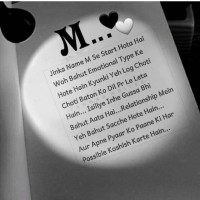 M...
Jinka Name M Se Start Hota Hai
Woh Bahut Emotional Type Ke
Hote Hain Kyunki Yeh Log Choti
Choti Baton Ko Dil Pr Le Leta
Hain... Isiliye Inhe Gussa Bhi
Bahut Aata Hai...Relationship Mein
Yeh Bahut Sacche Hote Hain...
Aur Apne Pyaar Ko Paane Ki Har
Possible Koshish Karte Hain...